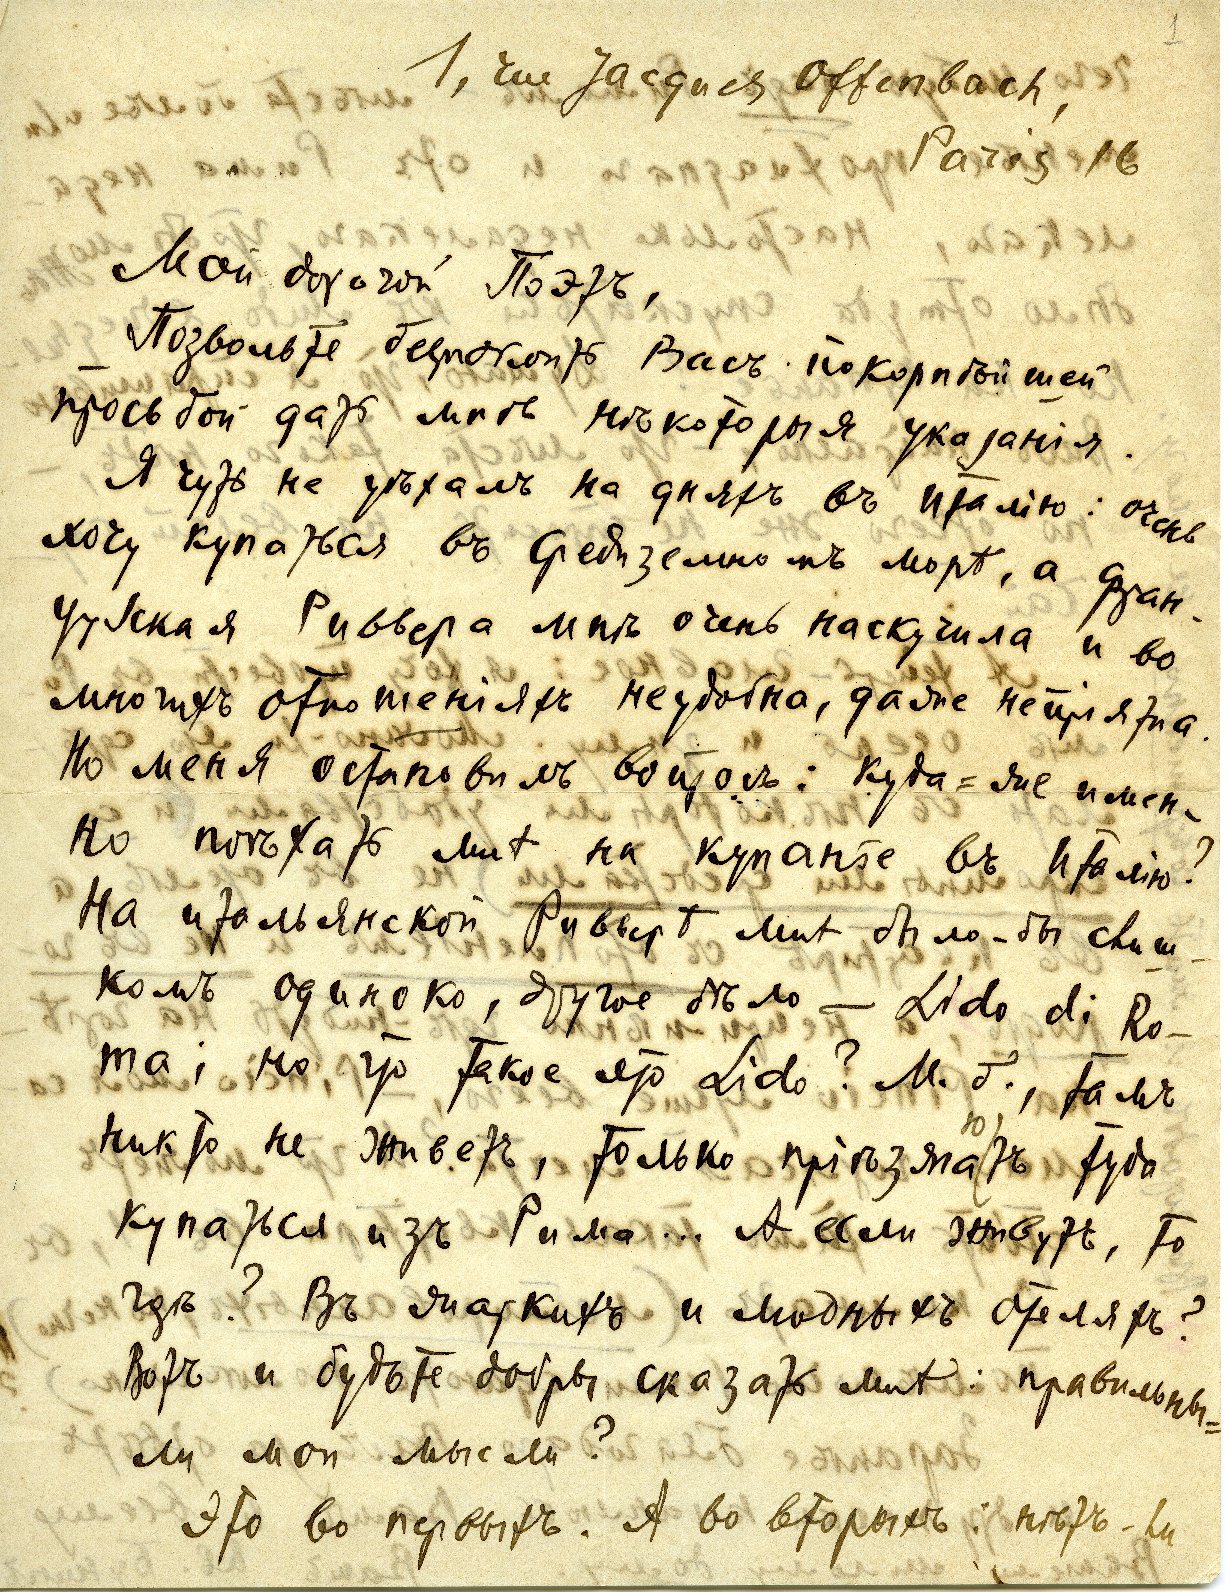 1
1, rue Jacques Offenbach,
Paris 16
Мой дорогой Поэтъ,
Позвольте безпокоить Васъ покорнѣйшей
просьбой дать мнѣ нѣкоторыя указанія.
Я чуть не уѣхалъ на дняхъ въ Италію: очень
хочу купаться въ Средиземномъ морѣ, а фран-
цузская Ривьера мнѣ очень наскучила и во
многихъ отношеніяхъ неудобна, даже непріятна.
Но меня остановилъ вопросъ: куда=же имен-
но поѣхать мнѣ на купанье въ Италію?
На итальянской Ривьерѣ мнѣ было-бы слиш-
комъ одиноко, другое дѣло — Lido di Ro-
ma; но, что такое это Lido? М. б., тамъ
никто не живетъ, только пріѣзжаютъ туда
купаться изъ Рима... А если живутъ, то
гдѣ? Въ жаркихъ и модныхъ отеляхъ?
Вотъ и будьте добры сказать мнѣ: правильны=
ли мои мысли?
Это во первыхъ. А во вторыхъ: нѣтъ-ли